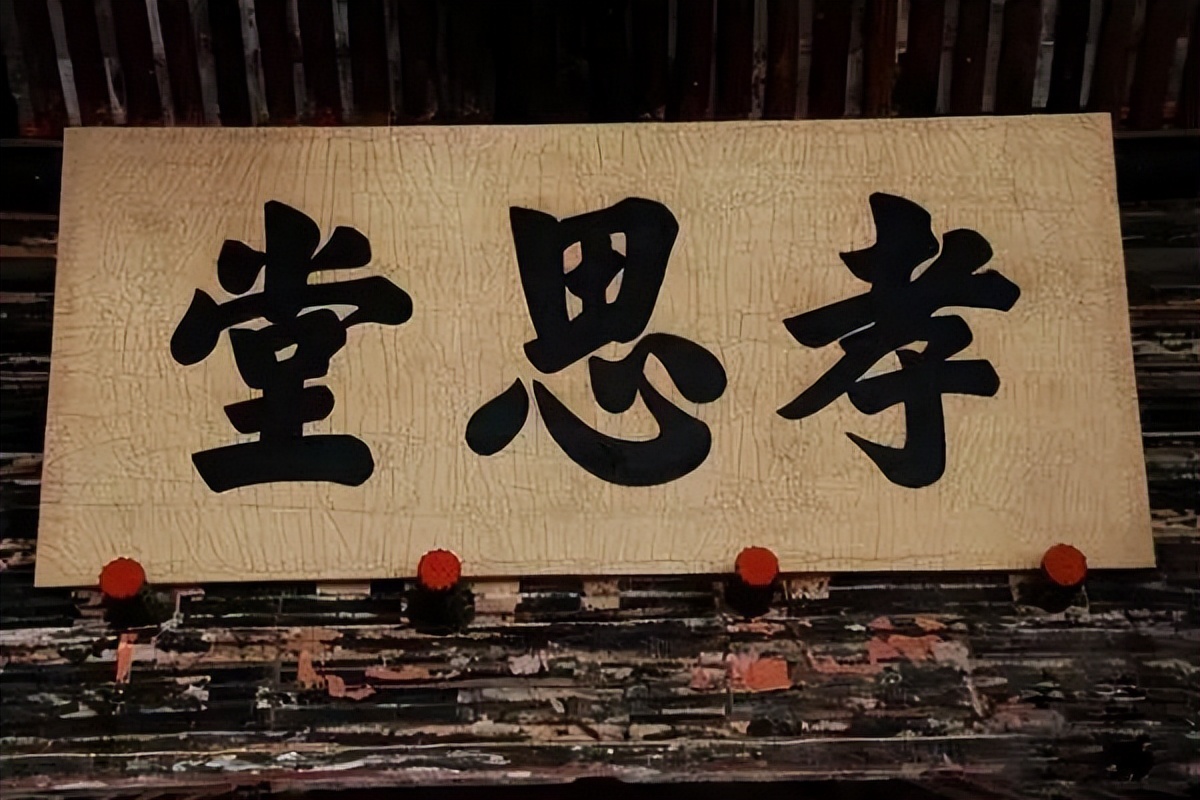 孝思堂